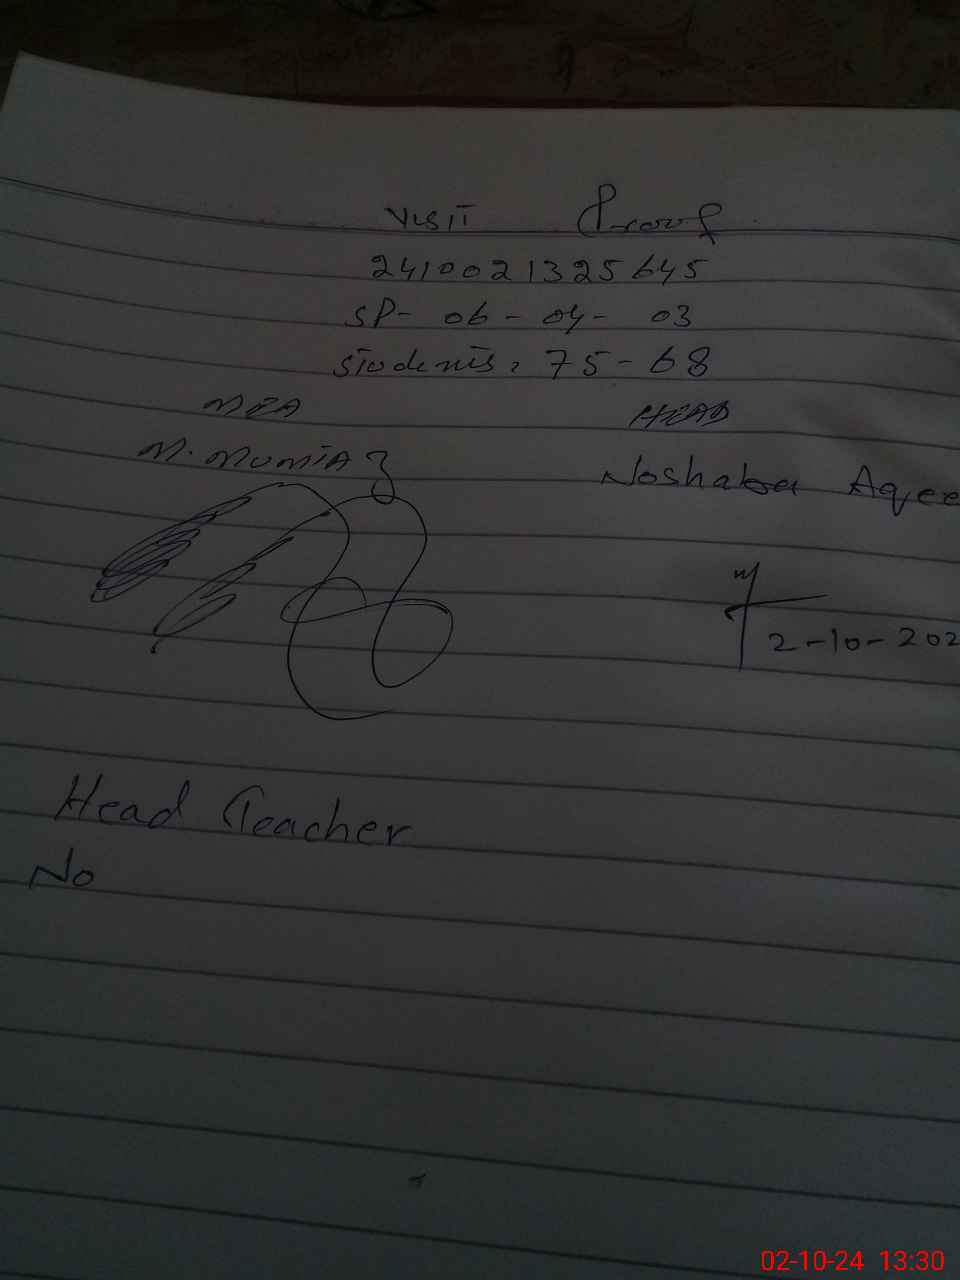 Visit Proof
2410021325645
SP- 06 - 04 - 03
Students: 75 - 68
MEA HEAD
M. Mumtaz Noshaba Aqee
2-10-202
Head Teacher
No
02-10-24 13:30